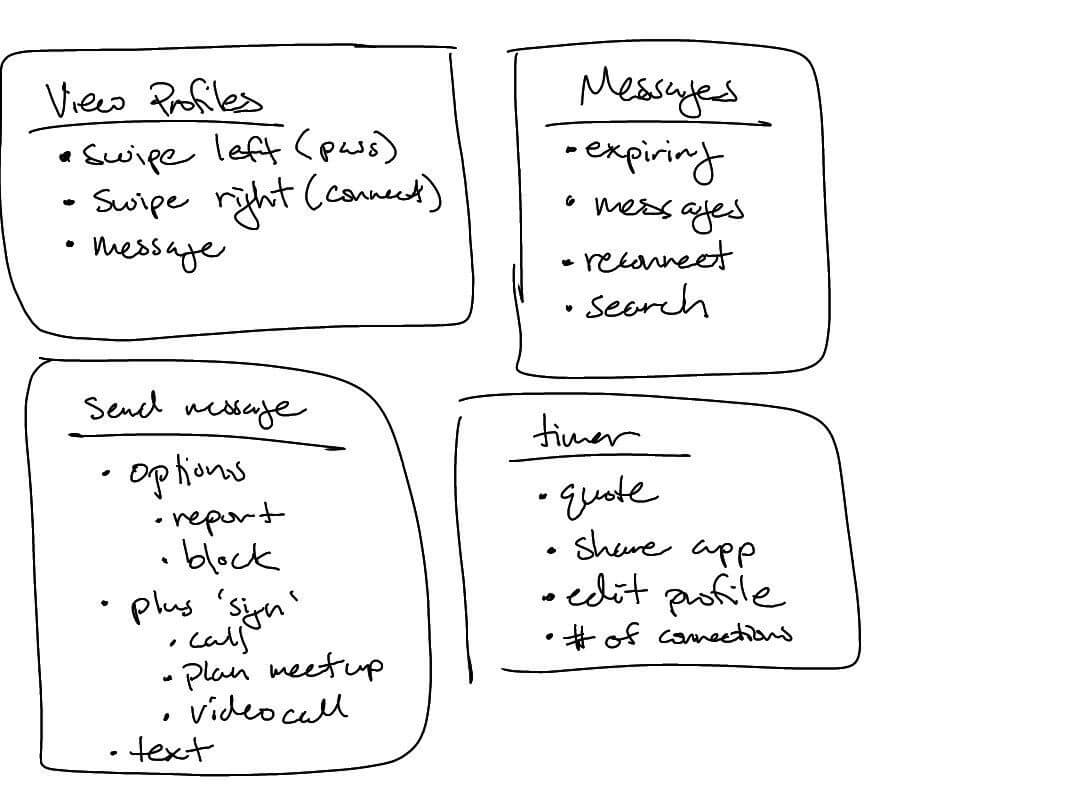 View Profiles
• Swipe left (pass)
• Swipe right (connect)
• message
Messages
• expiring
• messages
• reconnect
• search
Send message
• options
• report
• block
• plus 'sign'
• call
• plan meetup
• video call
• text
timer
• quote
• share app
• edit profile
• # of connections